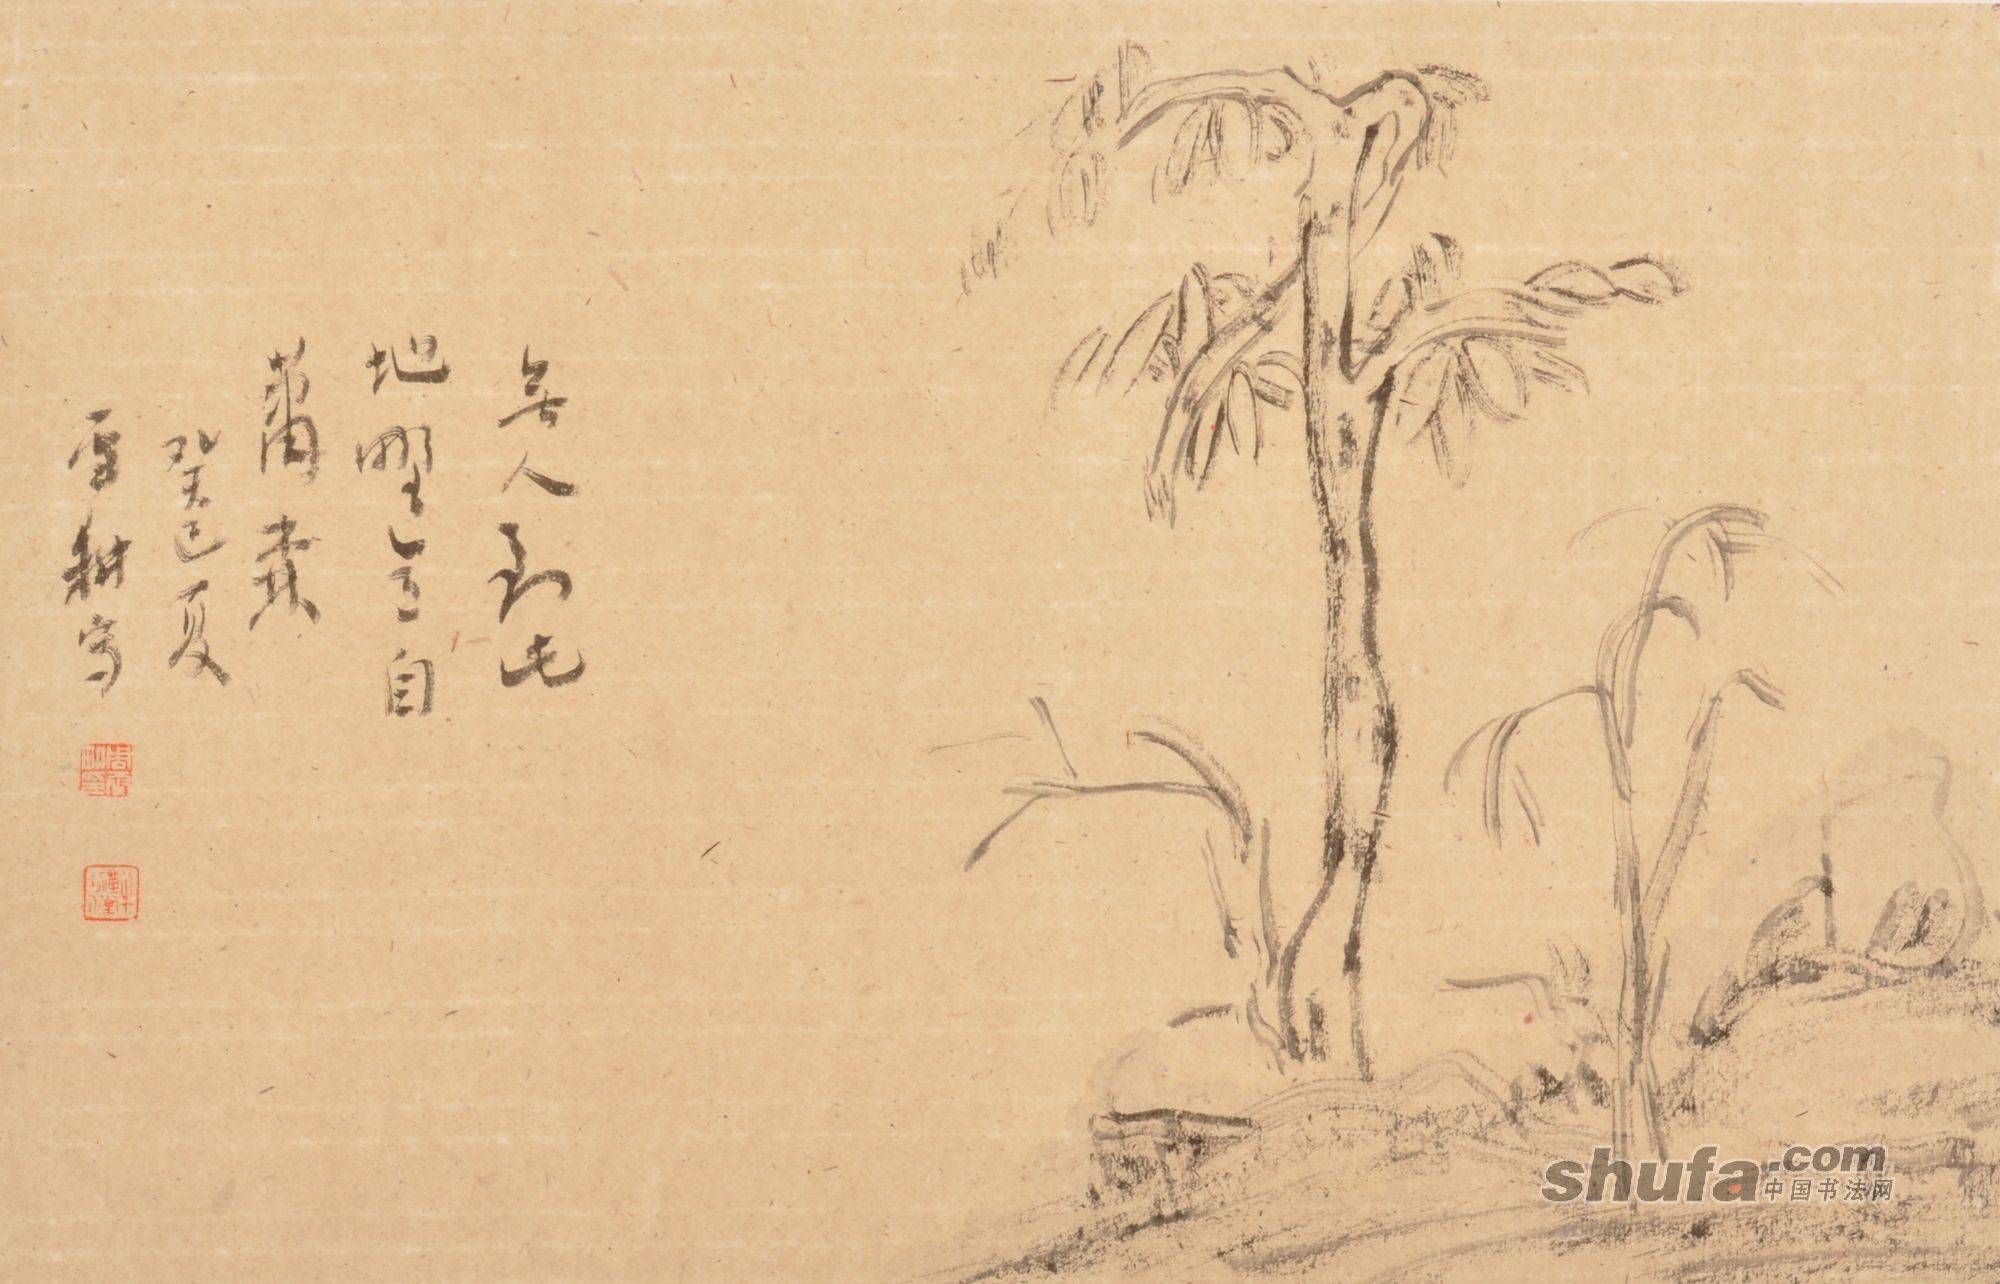 無人到此
地野意自
蕭森
癸巳夏
雪耕寫
shufa.com
中国书法网